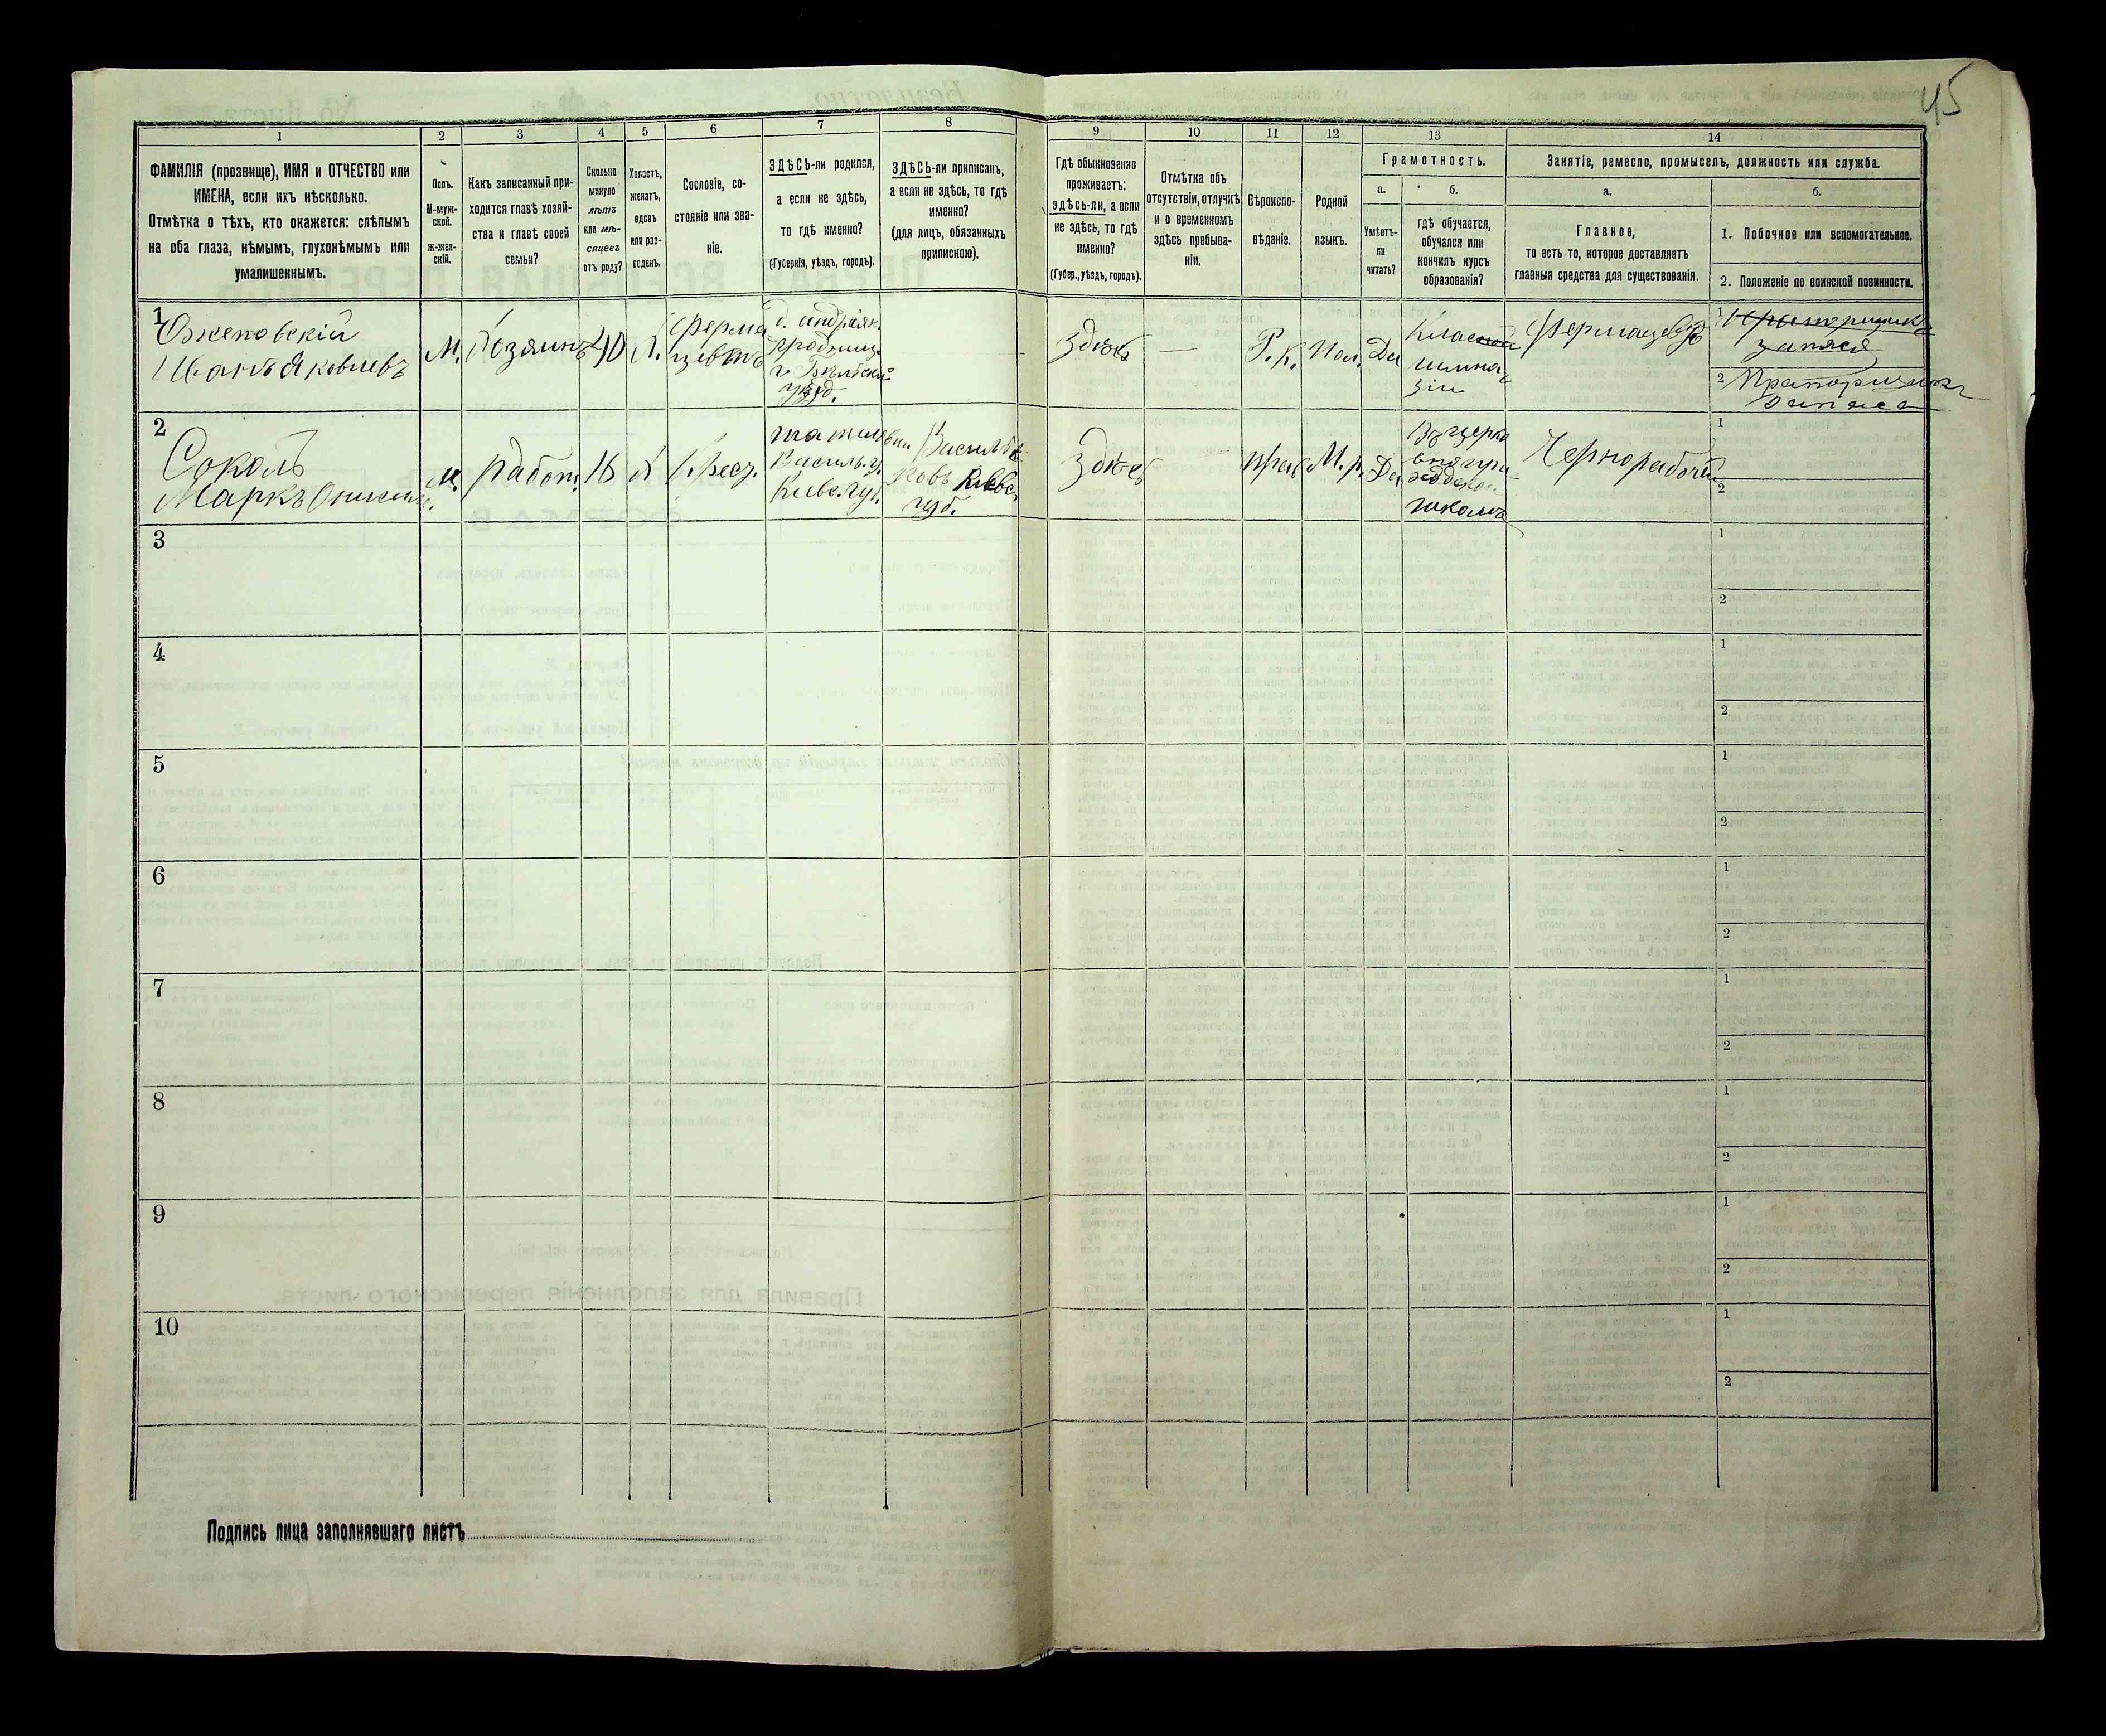 45
1
2
3
4
5
6
7
8
9
10
11
12
13
14
ФАМИЛІЯ (прозвище), ИМЯ и ОТЧЕСТВО или
ИМЕНА, если ихъ нѣсколько.
Отмѣтка о тѣхъ, кто окажется: слѣпымъ
на оба глаза, нѣмымъ, глухонѣмымъ или
умалишеннымъ.
Полъ.
М-муж-
ской.
Ж-жен-
скій.
Какъ записанный при-
ходится главѣ хозяй-
ства и главѣ своей
семьи?
Сколько
минуло
лѣтъ
или мѣ-
сяцевъ
отъ роду?
Холостъ,
женатъ,
вдовъ
или раз-
веденъ.
Сословіе, со-
стояніе или зва-
ніе.
ЗДѢСЬ-ли родился,
а если не здѣсь,
то гдѣ именно?
(Губернія, уѣздъ, городъ).
ЗДѢСЬ-ли приписанъ,
а если не здѣсь, то гдѣ
именно?
(для лицъ, обязанныхъ
припискою).
Гдѣ обыкновенно
проживаетъ:
здѣсь-ли, а если
не здѣсь, то гдѣ
именно?
(Губер., уѣздъ, городъ).
Отмѣтка объ
отсутствіи, отлучкѣ
и о временномъ
здѣсь пребыва-
ніи.
Вѣроиспо-
вѣданіе.
Родной
языкъ.
Грамотность.
а.
Умѣетъ-
ли
читать?
б.
гдѣ обучается,
обучался или
кончилъ курсъ
образованія?
Занятіе, ремесло, промыселъ, должность или служба.
а.
Главное,
то есть то, которое доставляетъ
главныя средства для существованія.
б.
1. Побочное или вспомогательное.
2. Положеніе по воинской повинности.
1
Иванъ Яковлевъ
М.
Хозяинъ
40
Фарма
цевтъ
уѣзд.
—
здѣсь
—
Р. К.
Пол.
Да
гимна
зіи
1
Прапорщикъ
запаса
2
Прапорщикъ
запаса
2
Соколъ
Маркъ
м.
работ.
16
Х
Крест.
Василь. у.
Кіевс. губ.
Василь
ковъ Кіевс.
губ.
Здѣсь
прав
М. р.
Да
Въ церко
вно при
ходской
школѣ
Чернорабочій
1
2
3
1
2
4
1
2
5
1
2
6
1
2
7
1
2
8
1
2
9
1
2
10
1
2
Подпись лица заполнявшаго листъ